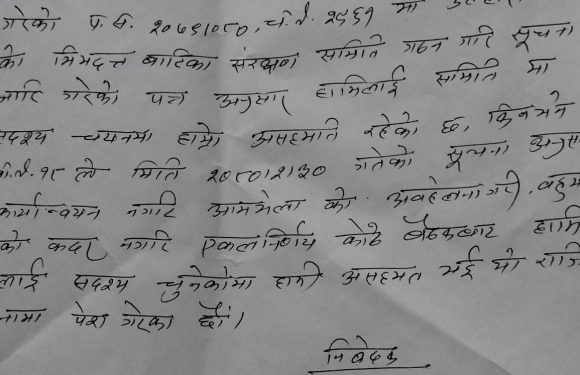 गरेको प. सं. २०७९।०८०, च. नं. २९६१ मा
को भिमदत्त बाटिका संरक्षण समिति गठन गरि सूचना
जारि गरेको पत्र अनुसार हामिलाई समिति मा
सदश्य चयनमा हाम्रो असहमति रहेको छ, किनभने
वि.नं. १८ ले मिति २०८०।२।३० गतेको सूचना अनुसा
कार्यान्वयन नगरि आमभेला को अवहेलना गरी, बहुम
को कदर नगरि एकलनिर्णय कोठे बैठकबाट हामि
लाई सदश्य चुनेकोमा हामी असहमत भई यो राजि
नामा पेश गरेका छौं।
निवेदक